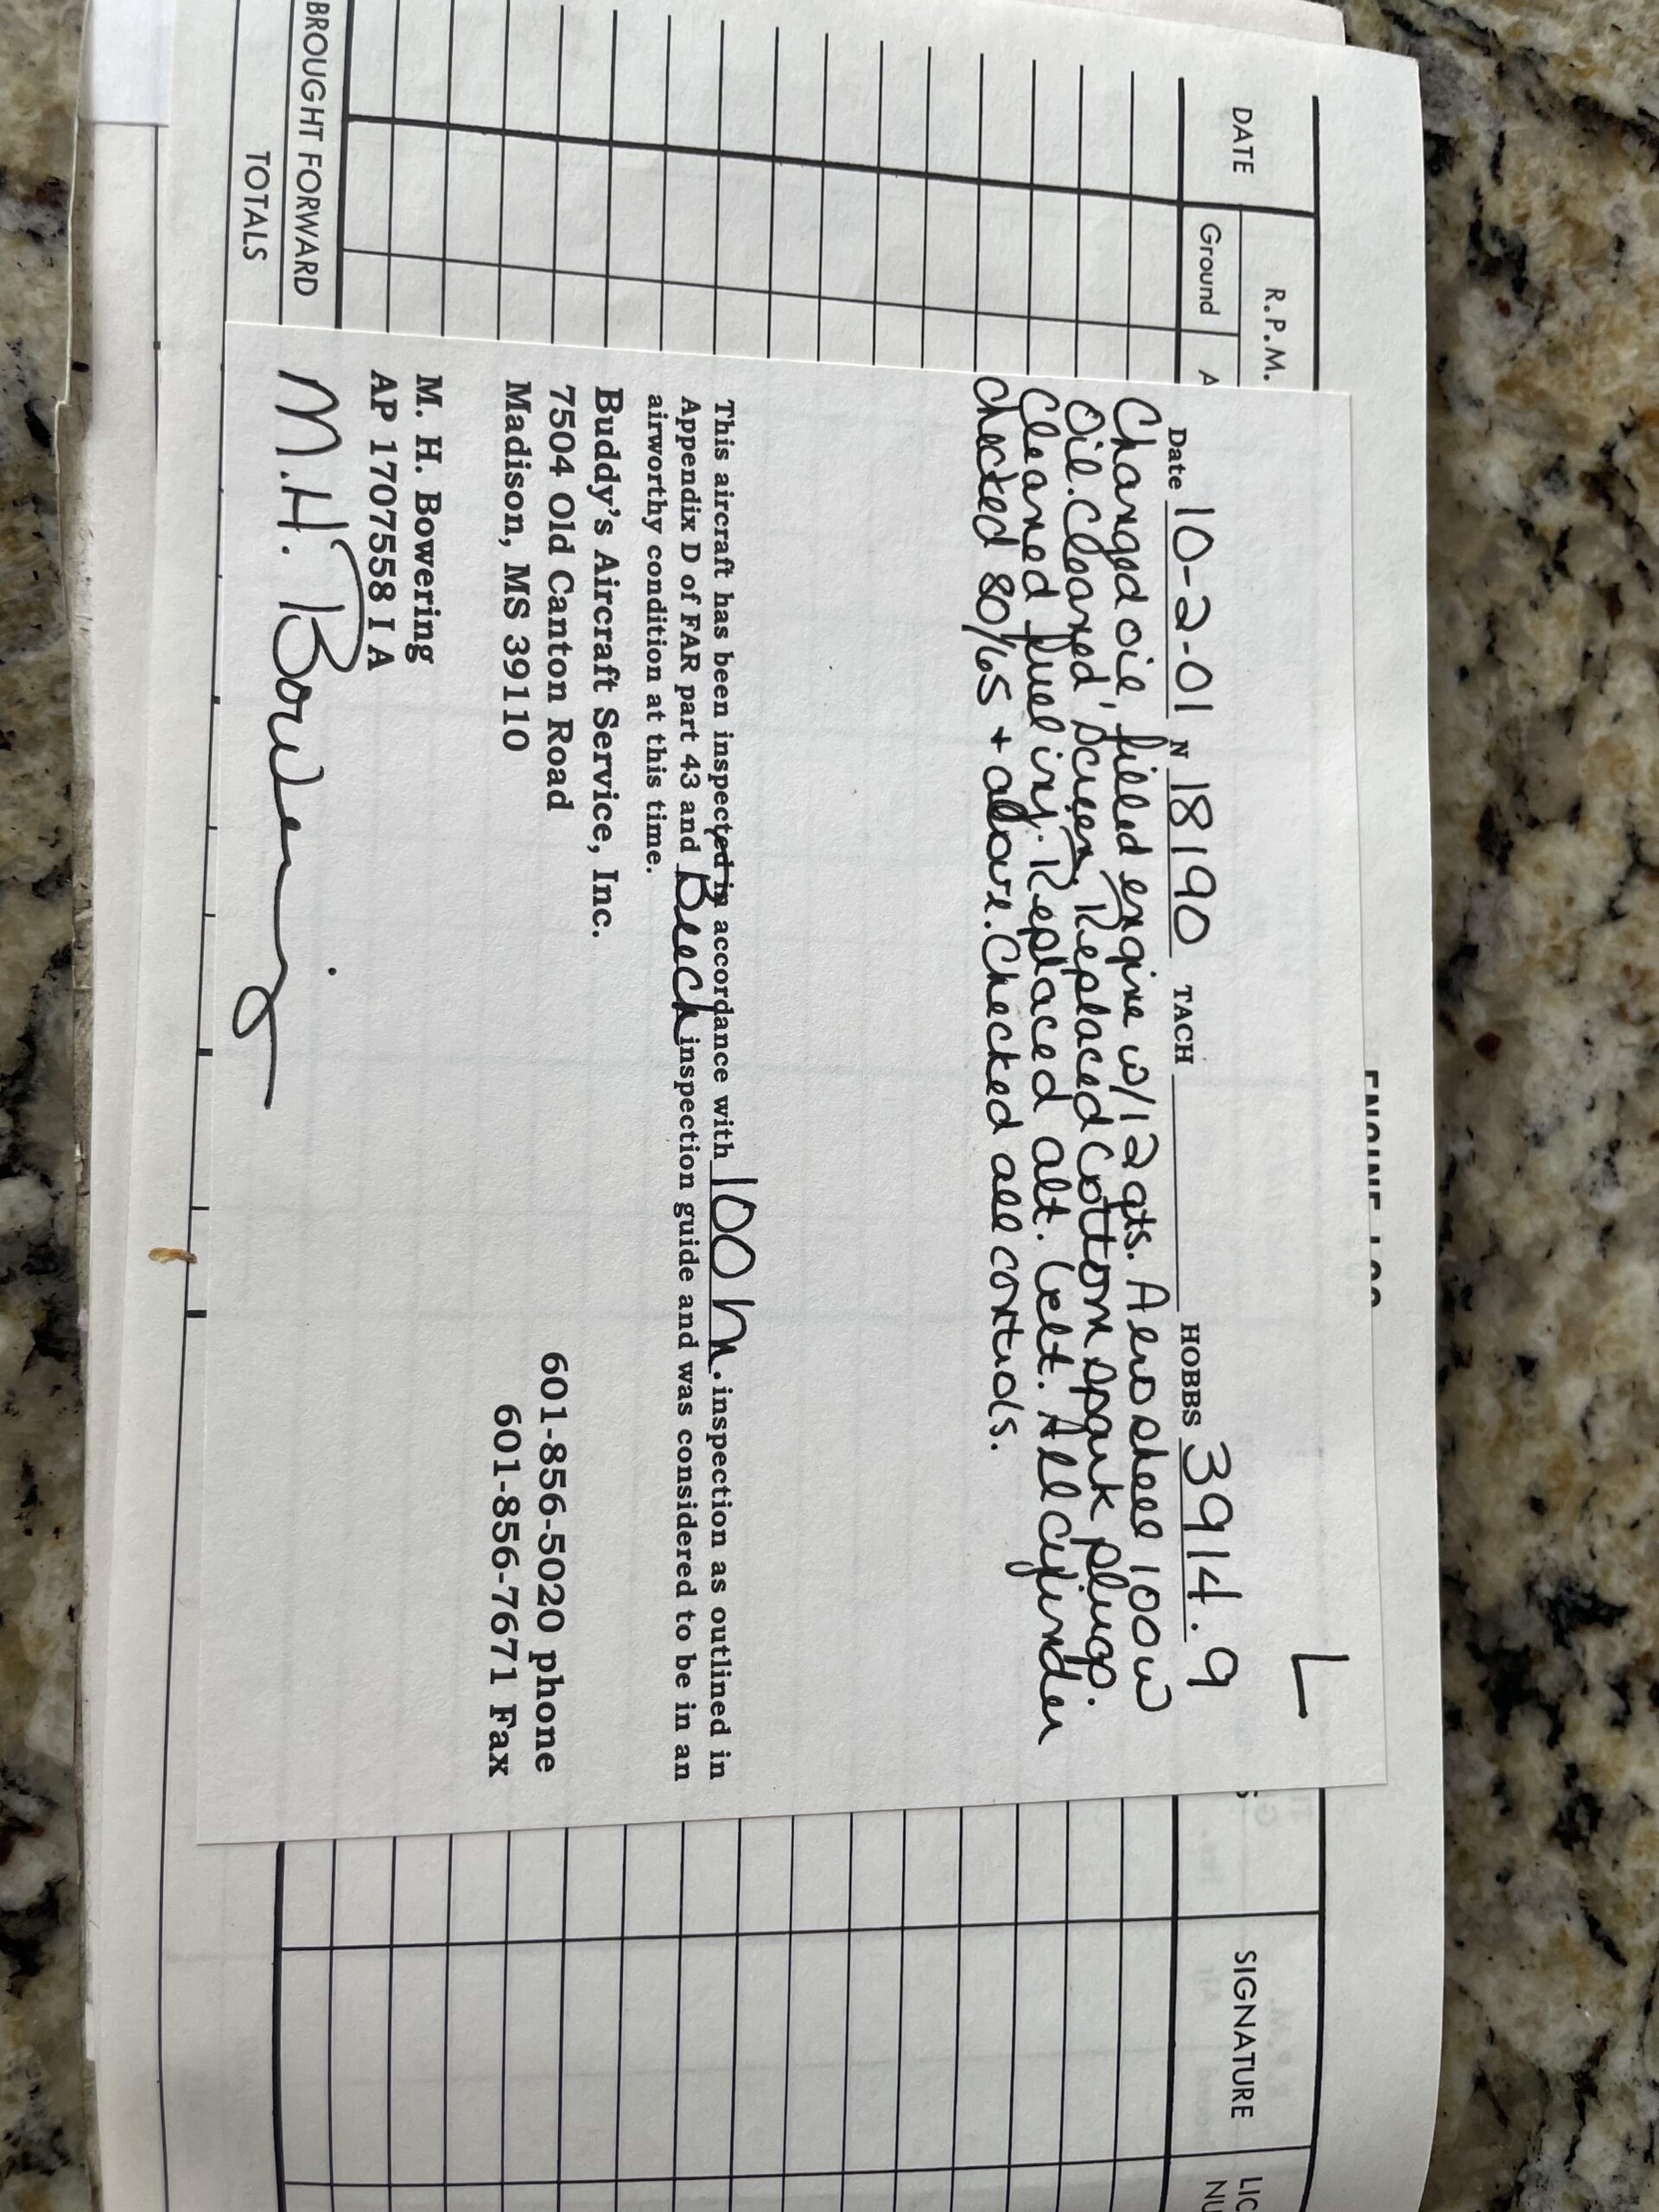 ENGINE LOG
DATE
R.P.M.
Ground
A
SIGNATURE
LIC
NU
BROUGHT FORWARD
TOTALS
L
Date 10-2-01 N 18190 TACH HOBBS 3914.9
Changed oil, filled engine w/12 qts. Aeroshell 100w
Oil. Cleaned screen, Replaced bottom spark plugs.
Cleaned fuel inj. Replaced alt. belt. All cylinder
checked 80/65 + above. Checked all controls.
This aircraft has been inspected in accordance with 100 hr. inspection as outlined in
Appendix D of FAR part 43 and Beech inspection guide and was considered to be in an
airworthy condition at this time.
Buddy's Aircraft Service, Inc.
7504 Old Canton Road 601-856-5020 phone
Madison, MS 39110 601-856-7671 Fax
M. H. Bowering
AP 1707558 I A
M.H. Bowering